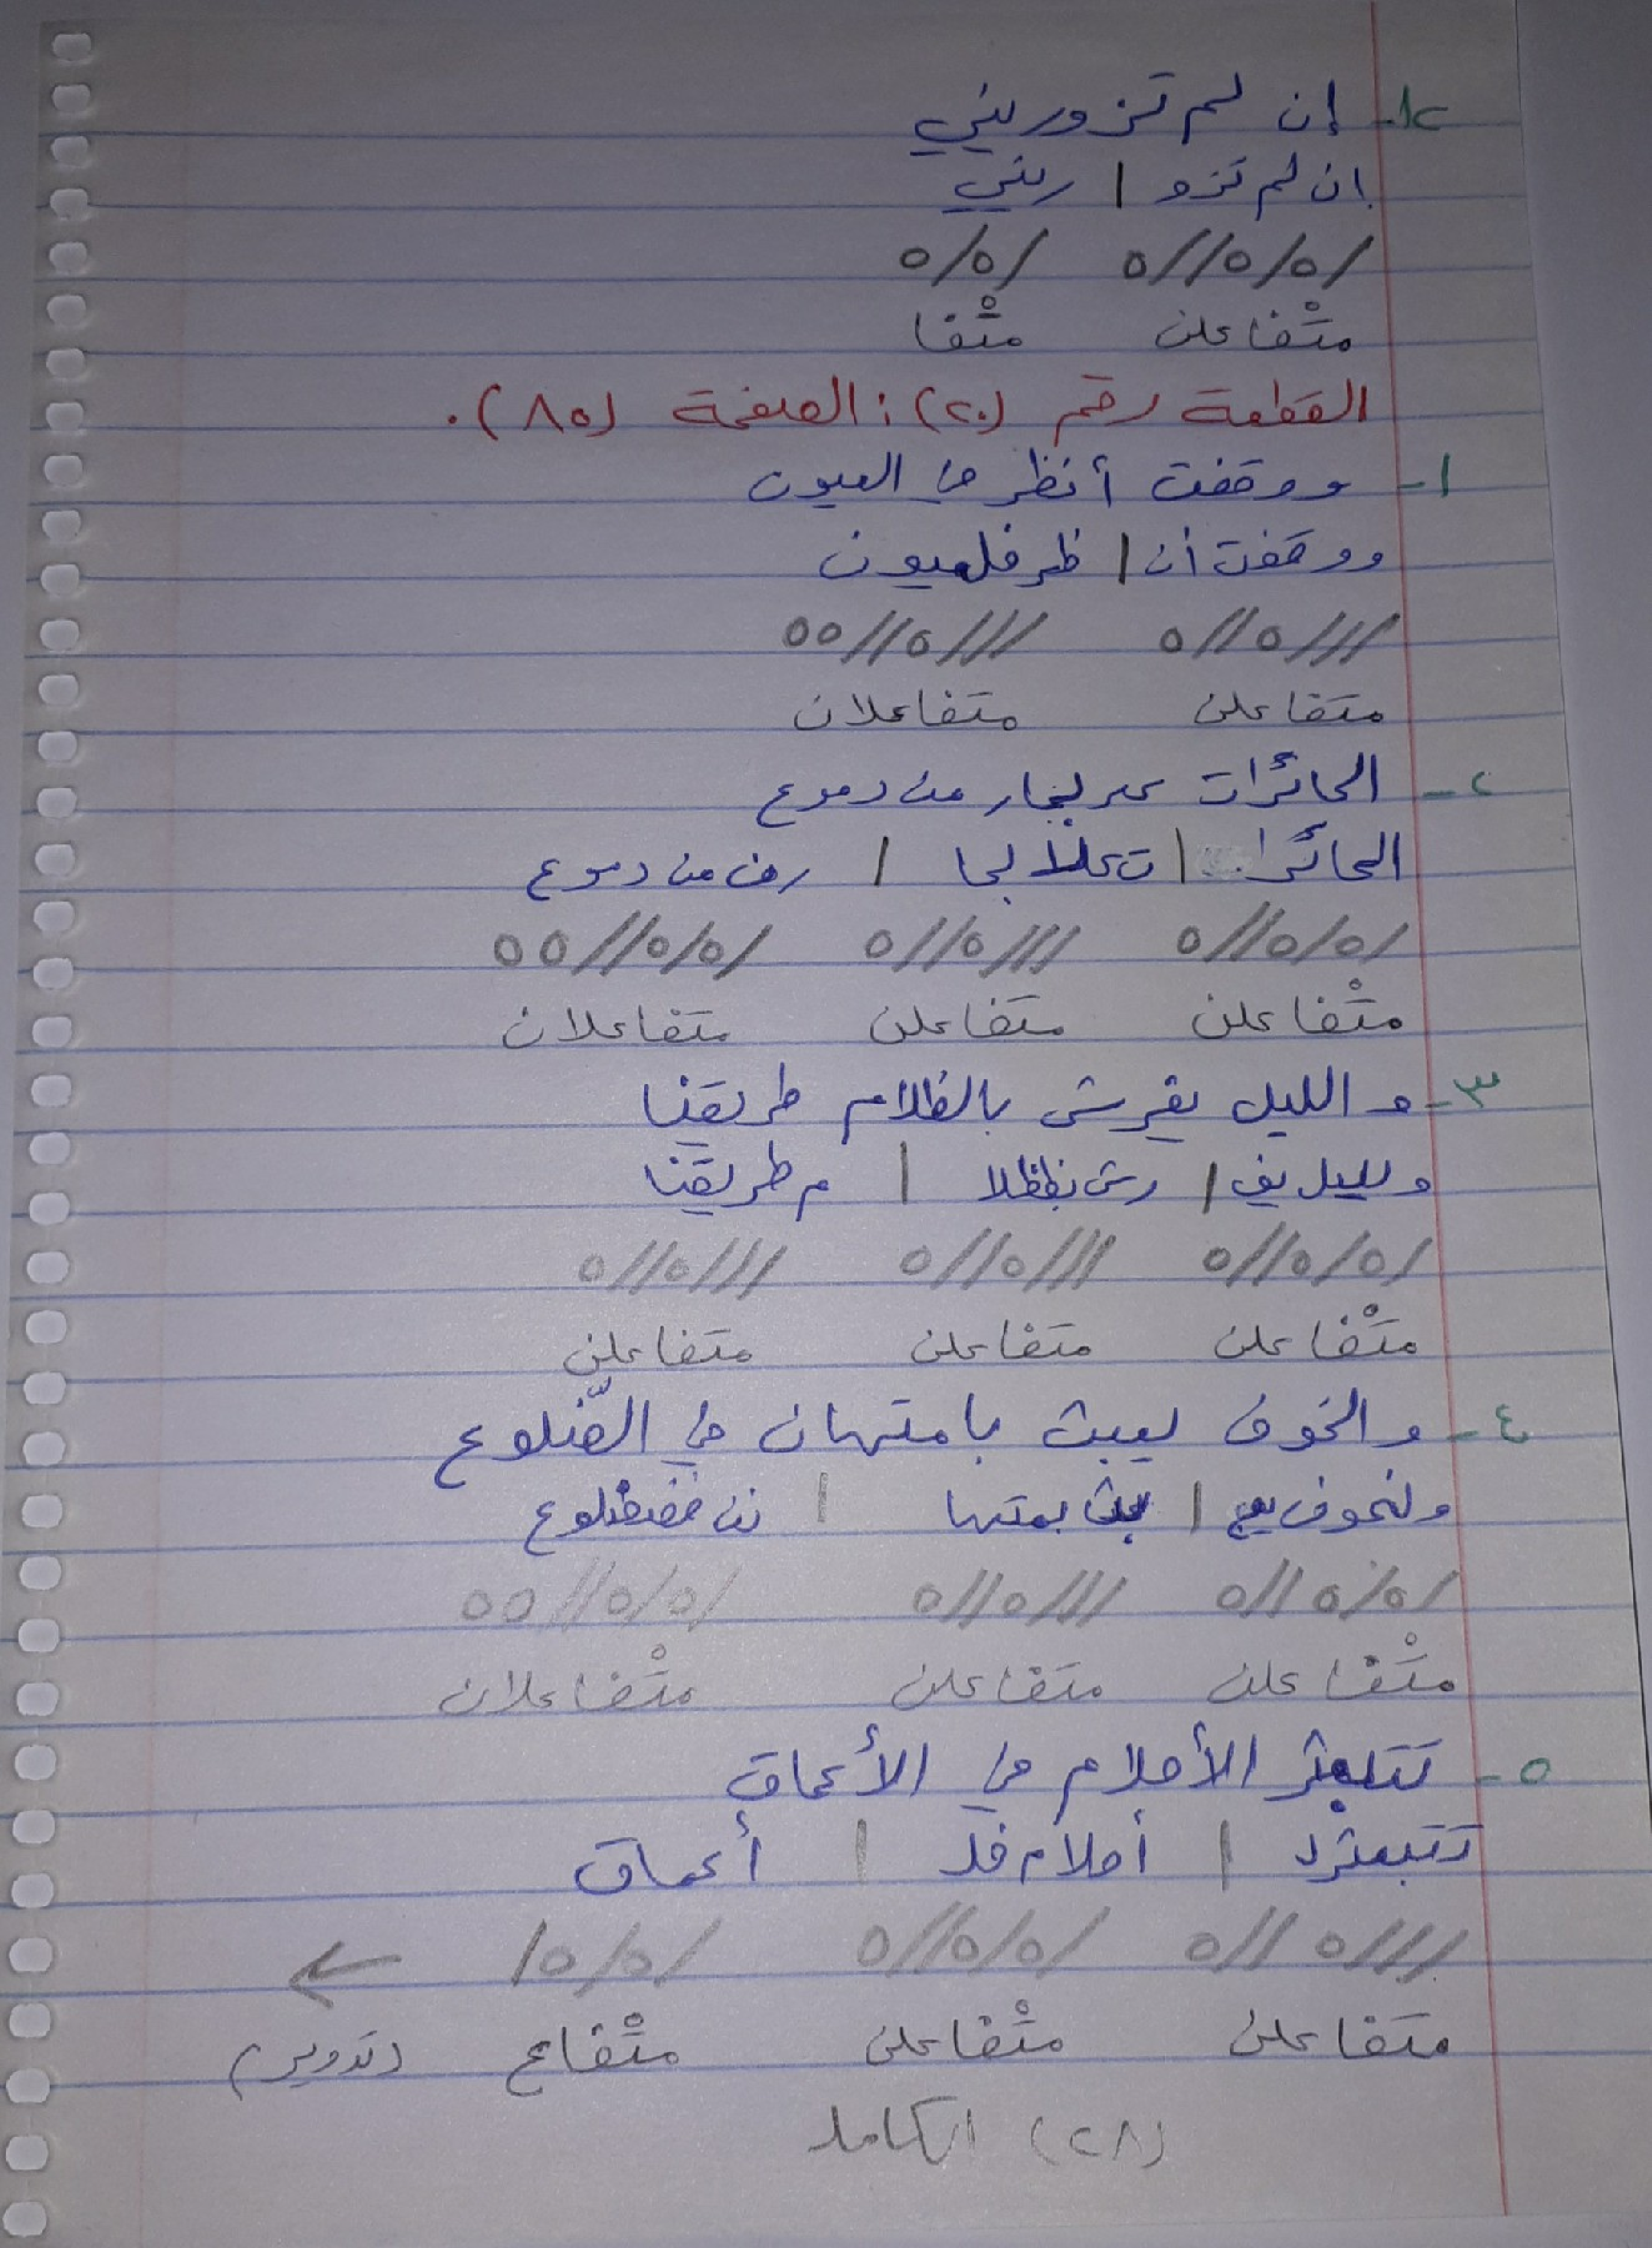 ١٢- إن لم تزوريني
إن لم تزو | ريني
/٥/٥//٥ /٥/٥
متْفاعلن متْفا
القطعة رقم (٢٠): الصفحة (٨٥).
١- ووقفت أنظر في العيون
ووقفت أن | ظر فلعيون
///٥//٥ ///٥//٥٥
متفاعلن متفاعلان
٢- الحائرات على بحار من دموع
الحائرا | ت على بحا | رن من دموع
/٥/٥//٥ ///٥//٥ /٥/٥//٥٥
متْفاعلن متفاعلن متفاعلان
٣- و الليل يفرش بالظلام طريقنا
ولليل يف | رش بظظلا | م طريقنا
/٥/٥//٥ ///٥//٥ ///٥//٥
متْفاعلن متفاعلن متفاعلن
٤- و الخوف يعبث بامتهان في الضّلوع
ولخوف يع | بث بمتها | نن فضضلوع
/٥/٥//٥ ///٥//٥ /٥/٥//٥٥
متْفاعلن متفاعلن متْفاعلان
٥- تتبعثر الأحلام في الأعماق
تتبعثرل | أحلام فل | أعماق
///٥//٥ /٥/٥//٥ /٥/٥/ ←
متفاعلن متْفاعلن متْفاع (تدوير)
(٢٨) الكامل